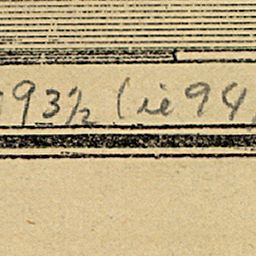 93½ (ie 94)